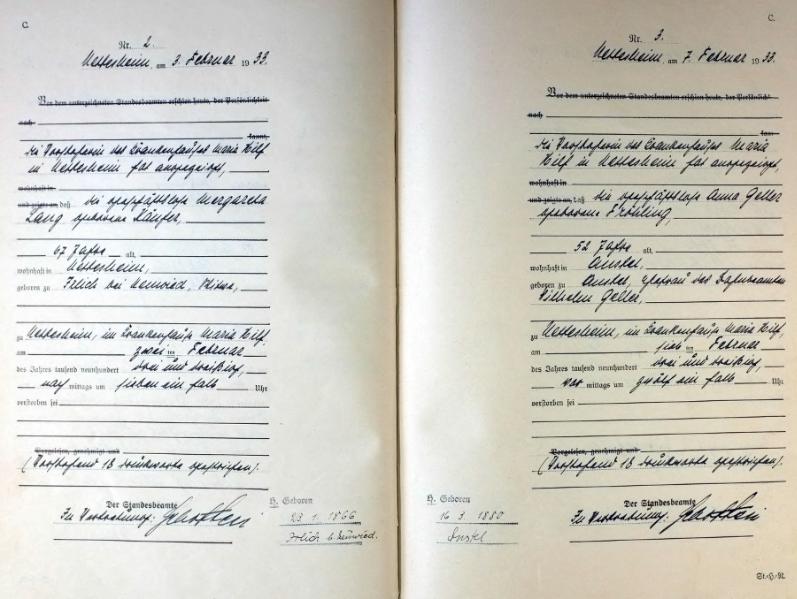 C.
Nr. 2.
Nettersheim, am 3. Februar 1933.
Vor dem unterzeichneten Standesbeamten erschien heute, der Persönlichkeit
nach
kannt,
die Vorsteherin des Krankenhauses Maria Hilf
in Nettersheim hat angezeigt,
wohnhaft in
und zeigte an, daß die geschäftslose Margareta
Lang geborene Käufer,
67 Jahre alt,
wohnhaft in Nettersheim,
geboren zu Irlich bei Neuwied, Witwe,
zu Nettersheim, im Krankenhause Maria Hilf,
am zwei ten Februar
des Jahres tausend neunhundert drei und dreißig,
nach mittags um sieben ein halb Uhr
verstorben sei
Vorgelesen, genehmigt und
(Vorstehend 18 Druckworte gestrichen).
Der Standesbeamte
In Vertretung:
H. Geboren
23. 1. 1866
Irlich b. Neuwied.
C.
Nr. 3.
Nettersheim, am 7. Februar 1933.
Vor dem unterzeichneten Standesbeamten erschien heute, der Persönlich
nach
kann
die Vorsteherin des Krankenhauses Maria
Hilf in Nettersheim hat angezeigt,
wohnhaft in
und zeigte an, daß die geschäftslose Anna Geller
geborene Fröhling,
52 Jahre alt,
wohnhaft in
geboren zu Ehefrau des Bahnbeamten
Wilhelm Geller,
zu Nettersheim, im Krankenhause Maria Hilf,
am sieb ten Februar
des Jahres tausend neunhundert drei und dreißig,
vor mittags um zwölf ein halb Uhr
verstorben sei
Vorgelesen, genehmigt und
(Vorstehend 18 Druckworte gestrichen).
Der Standesbeamte
In Vertretung:
H. Geboren
16. 3. 1880
St.-H.-N.